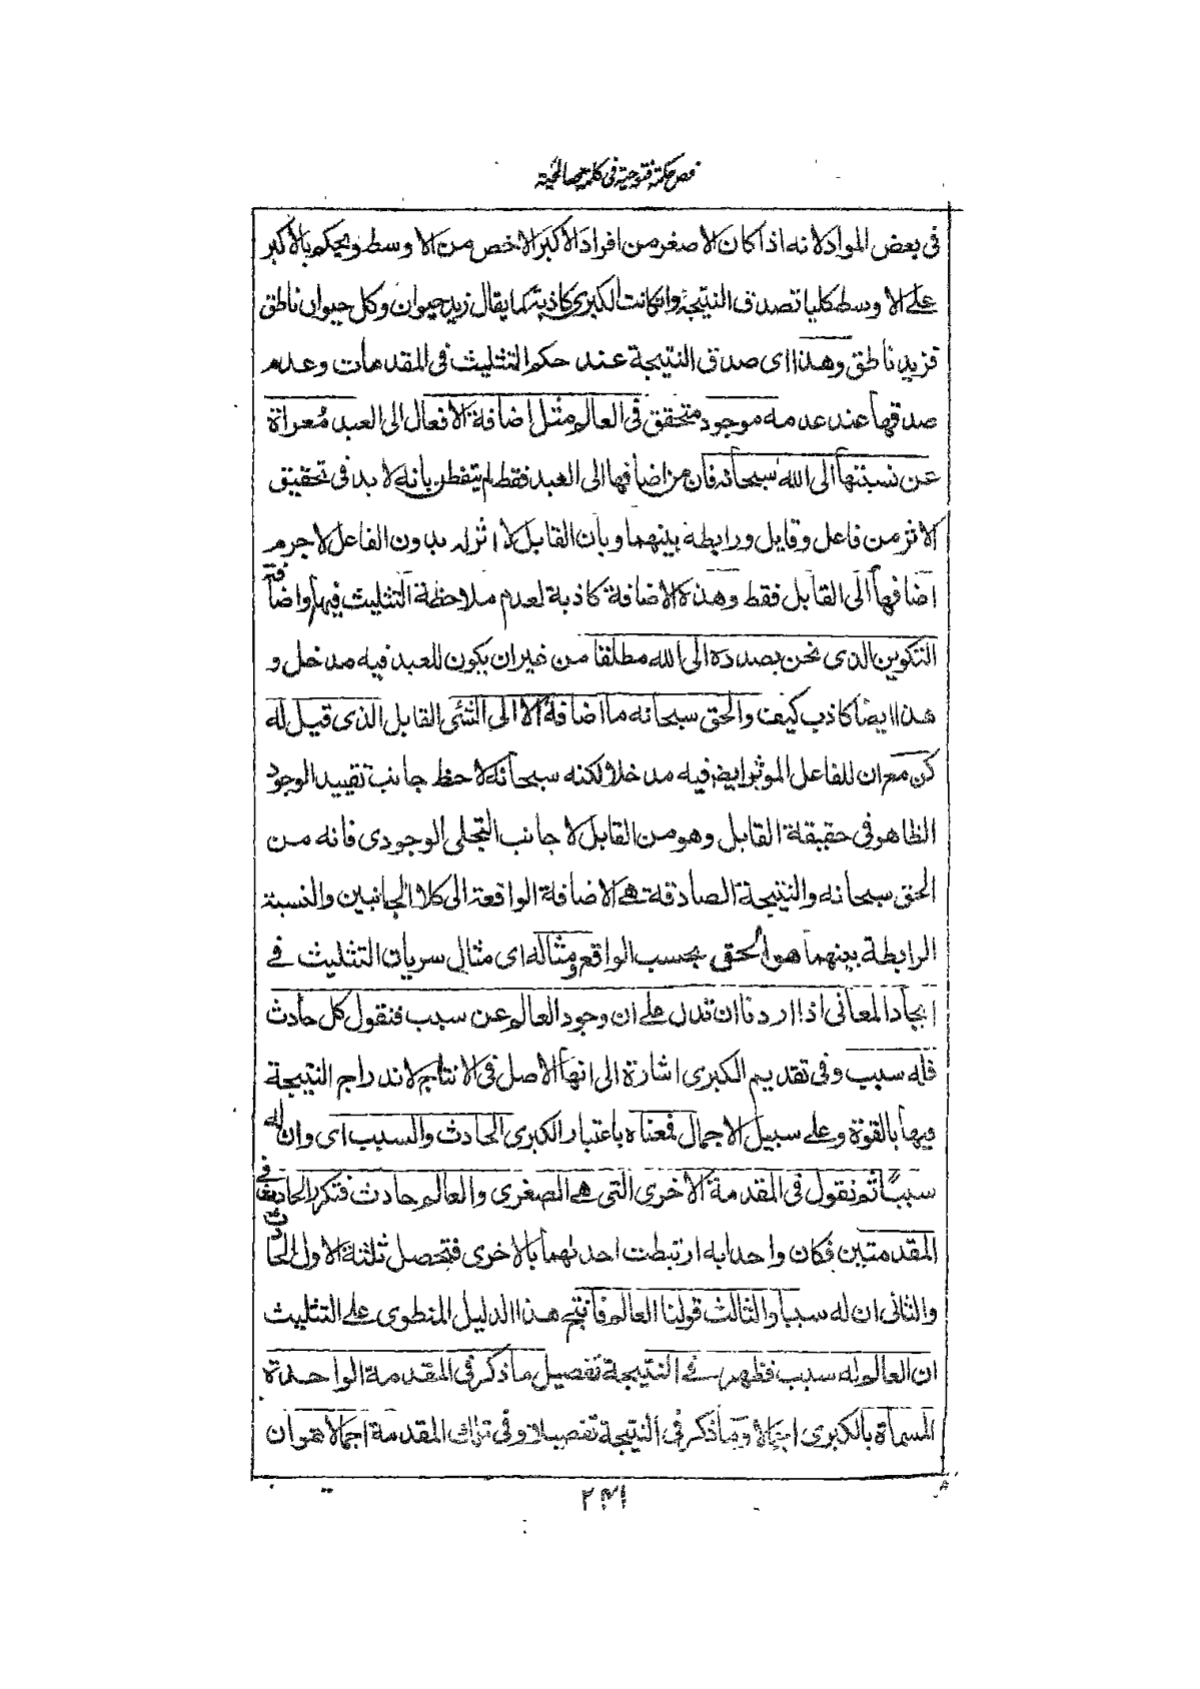 فص حكمة فتوحية فى كلمة صالحية
فى بعض المواد لانه اذا كان الاصغر من افراد الاكبر الاخص من الاوسط ويحكم بالاكبر
على الاوسط كليا تصدق النتيجة وان كانت الكبرى كاذبة كما يقال زيد حيوان وكل حيوان ناطق
فزيد ناطق وهذا اى صدق النتيجة عند حكم التثليث فى المقدمات وعدم
صدقها عند عدمه موجود متحقق فى العالم مثل اضافة الافعال الى العبد مُعراة
عن نسبتها الى الله سبحانه فان من اضافها الى العبد فقط لم يتفطن بانه لا بد فى تحقيق
الاثر من فاعل وقابل ورابطة بينهما وبان القابل لا اثر له بدون الفاعل لا جرم
اضافها الى القابل فقط وهذه الاضافة كاذبة لعدم ملاحظة التثليث فيها واضافة
التكوين الذى نحن بصدده الى الله مطلقا من غير ان يكون للعبد فيه مدخل و
هذا ايضا كاذب كيف والحق سبحانه ما اضافه الا الى الشئ القابل الذى قيل له
كن مع ان للفاعل الموثر ايضا فيه مدخلا لكنه سبحانه لاحظ جانب تقييد الوجود
الظاهر فى حقيقة القابل وهو من القابل لا جانب التجلى الوجودى فانه من
الحق سبحانه والنتيجة الصادقة هى الاضافة الواقعة الى كلا الجانبين والنسبة
الرابطة بينهما هو الحق بحسب الواقع ومثاله اى مثال سريان التثليث فى
ايجاد المعانى اذا اردنا ان ندل على ان وجود العالم عن سبب فنقول كل حادث
فله سبب وفى تقديم الكبرى اشارة الى انها الاصل فى الانتاج لاندراج النتيجة
فيها بالقوة وعلى سبيل الاجمال فمعناه باعتبار الكبرى الحادث والسبب اى وان له
سببًا ثم نقول فى المقدمة الاخرى التى هى الصغرى والعالم حادث فتكرر الحادث فى
المقدمتين فكان واحدا به ارتبطت احدىهما بالاخرى فتحصل ثلثة الاول الحادث
والثانى ان له سببا والثالث قولنا العالم فانتج هذا الدليل المنطوى على التثليث
ان العالم له سبب فظهر فى النتيجة تفصيل ما ذكر فى المقدمة الواحدة
المسماة بالكبرى اجمالا وما ذكر فى النتيجة تفصيلا وفى تلك المقدمة اجمالا هو ان